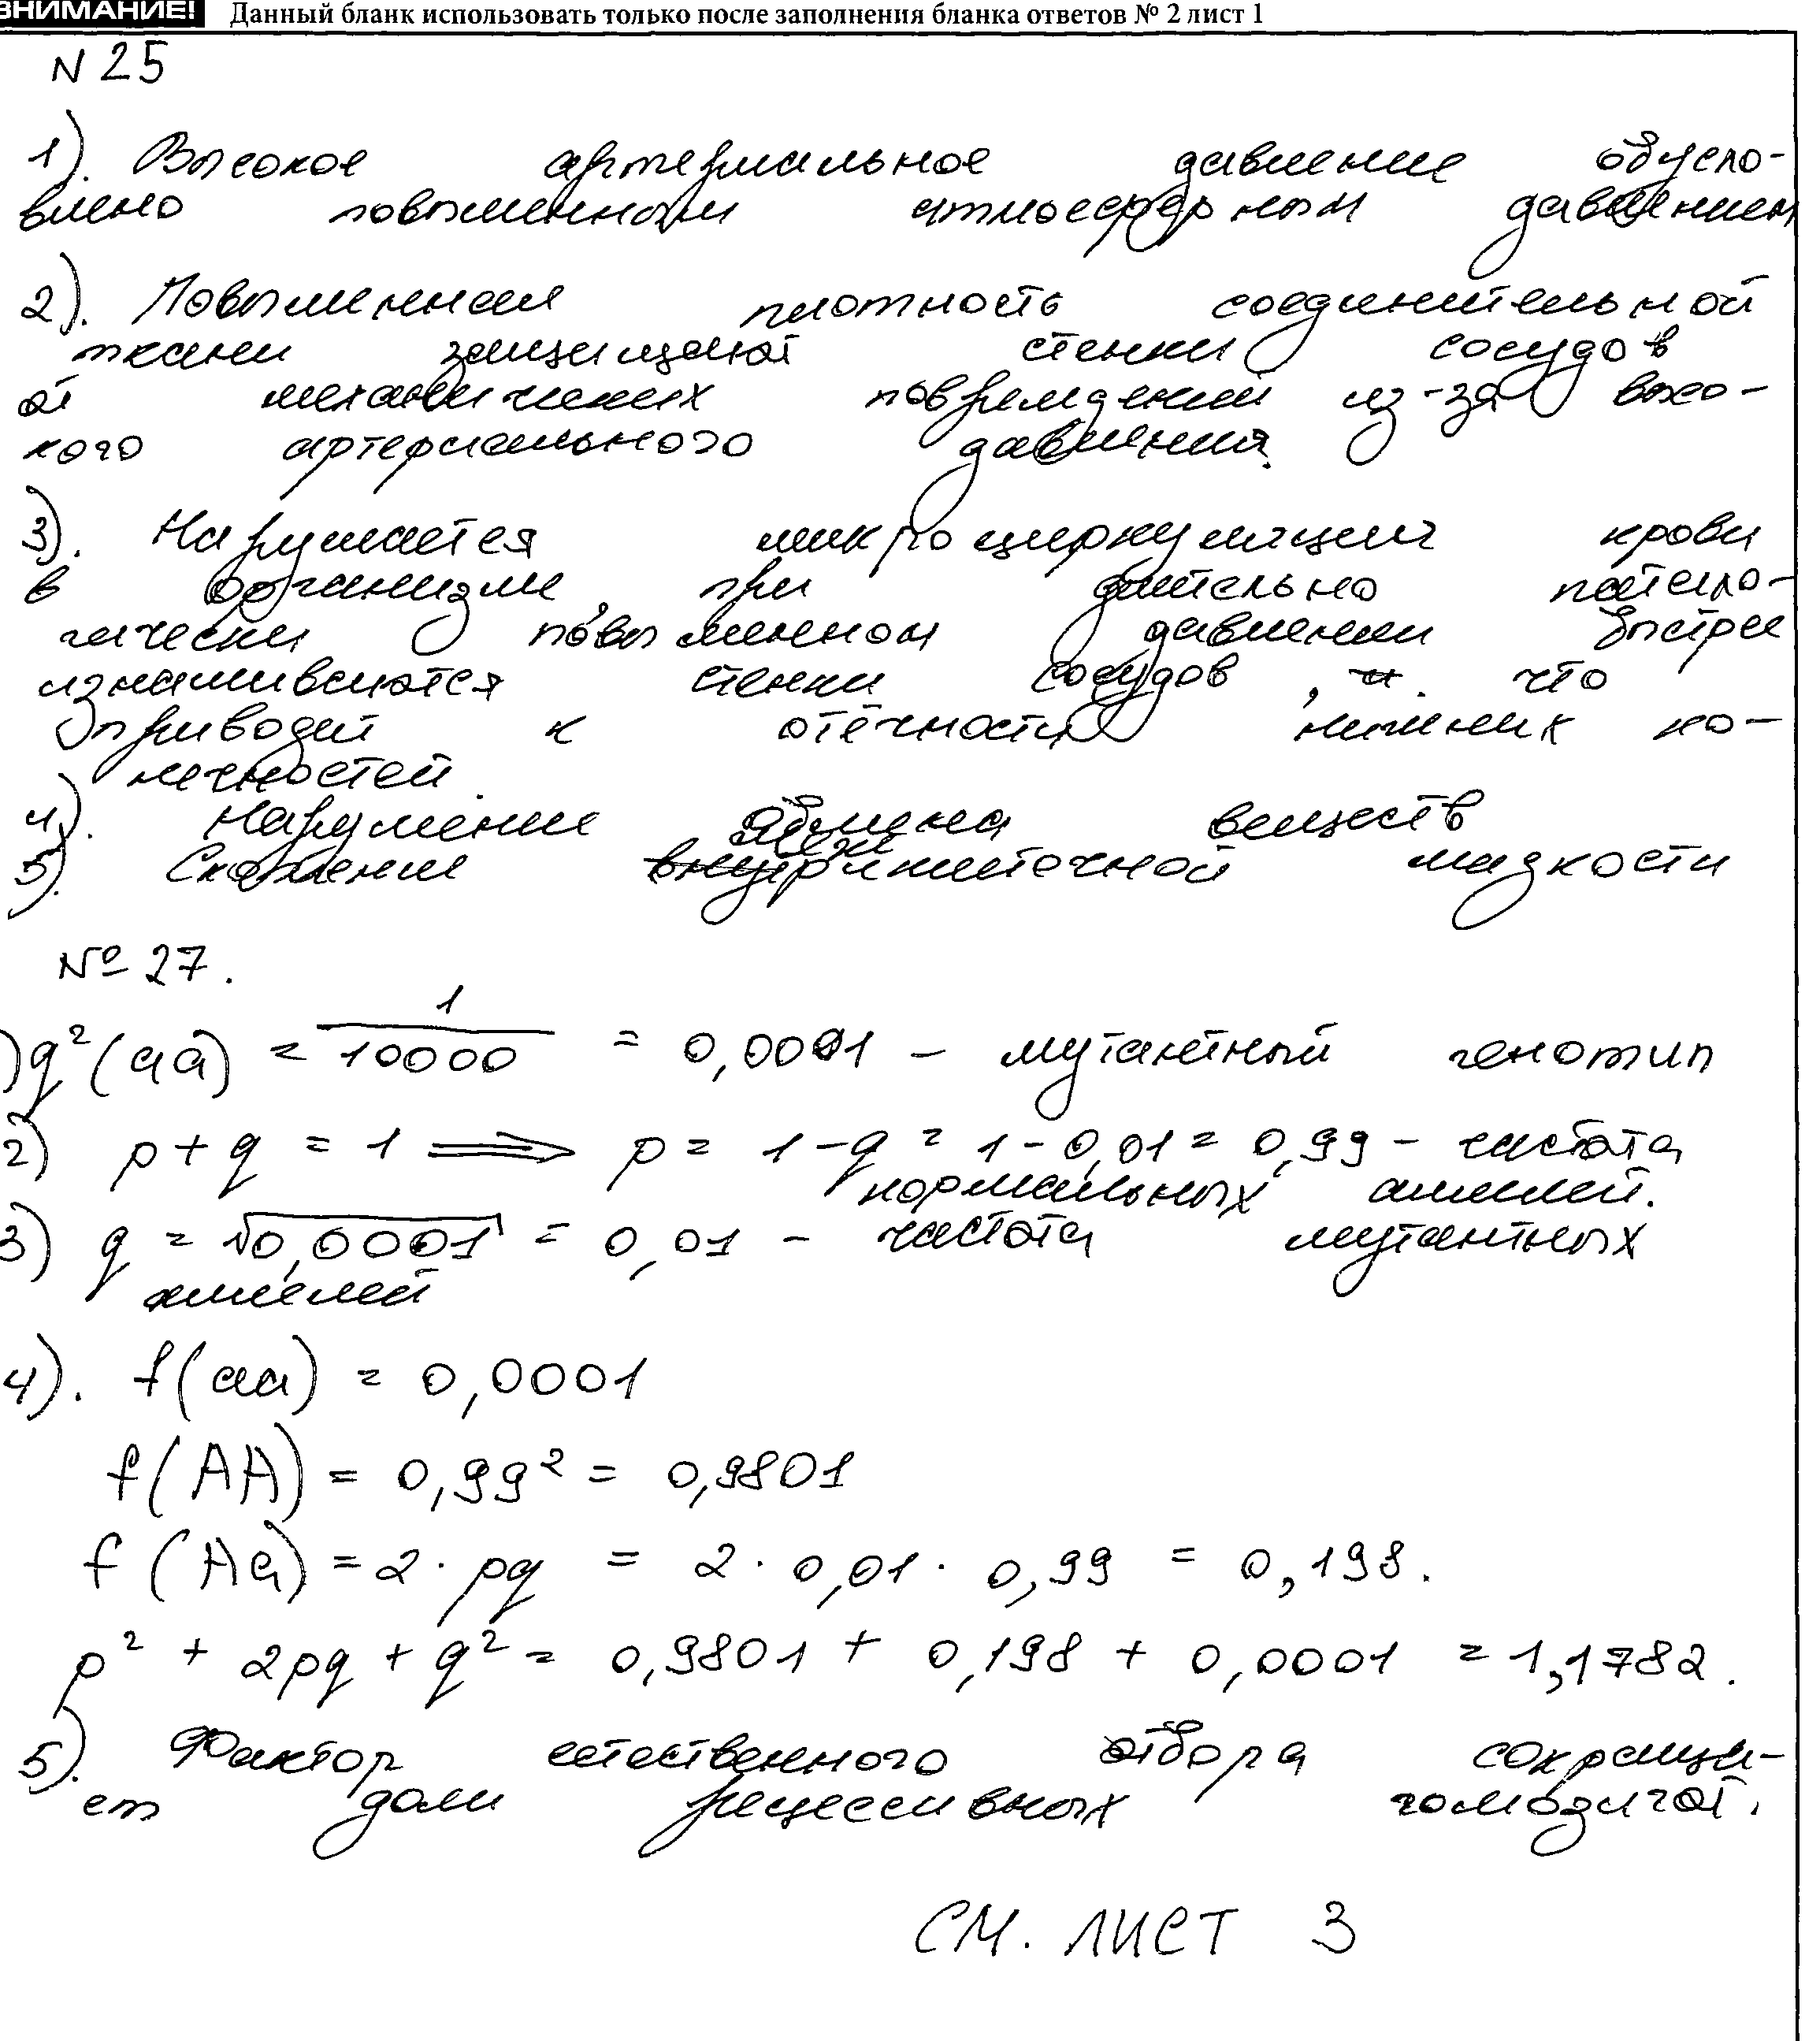 ВНИМАНИЕ! Данный бланк использовать только после заполнения бланка ответов № 2 лист 1
N 25
1). Высокое артериальное давление обусло-
влено повышенным атмосферным давлением
2). Повышенная плотность соединительной
ткани защищают стенки сосудов
от механических повреждений из-за высо-
кого артериального давления.
3). Нарушается микроциркуляция крови
в организме, при длительно патоло-
гически повышенном давлении быстрее
изнашиваются стенки сосудов, что
приводит к отёчности нижних ко-
нечностей.
4). Нарушение обмена веществ
5). Скопление межклеточной жидкости
№ 27.
1) q²(aa) = 1/10000 = 0,0001 – мутантный генотип
2) p + q = 1 ⟹ p = 1 – q = 1 – 0,01 = 0,99 – частота
нормальных аллелей.
3) q = √0,0001 = 0,01 – частота мутантных
аллелей
4). f(aa) = 0,0001
f(AA) = 0,99² = 0,9801
f(Aa) = 2 · pq = 2 · 0,01 · 0,99 = 0,198.
p² + 2pq + q² = 0,9801 + 0,198 + 0,0001 = 1,1782.
5). Фактор естественного отбора сокраща-
ет доли рецессивных гомозигот.
СМ. ЛИСТ 3